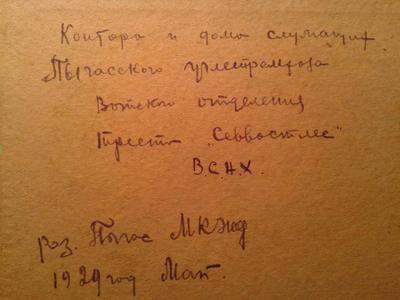 Контора и дома служащих
Пычасского углестромхоза
Вотского отделения
треста „Севвостлес"
В.С.Н.Х.
раз. Пычас МКЖД
1929 год Май.